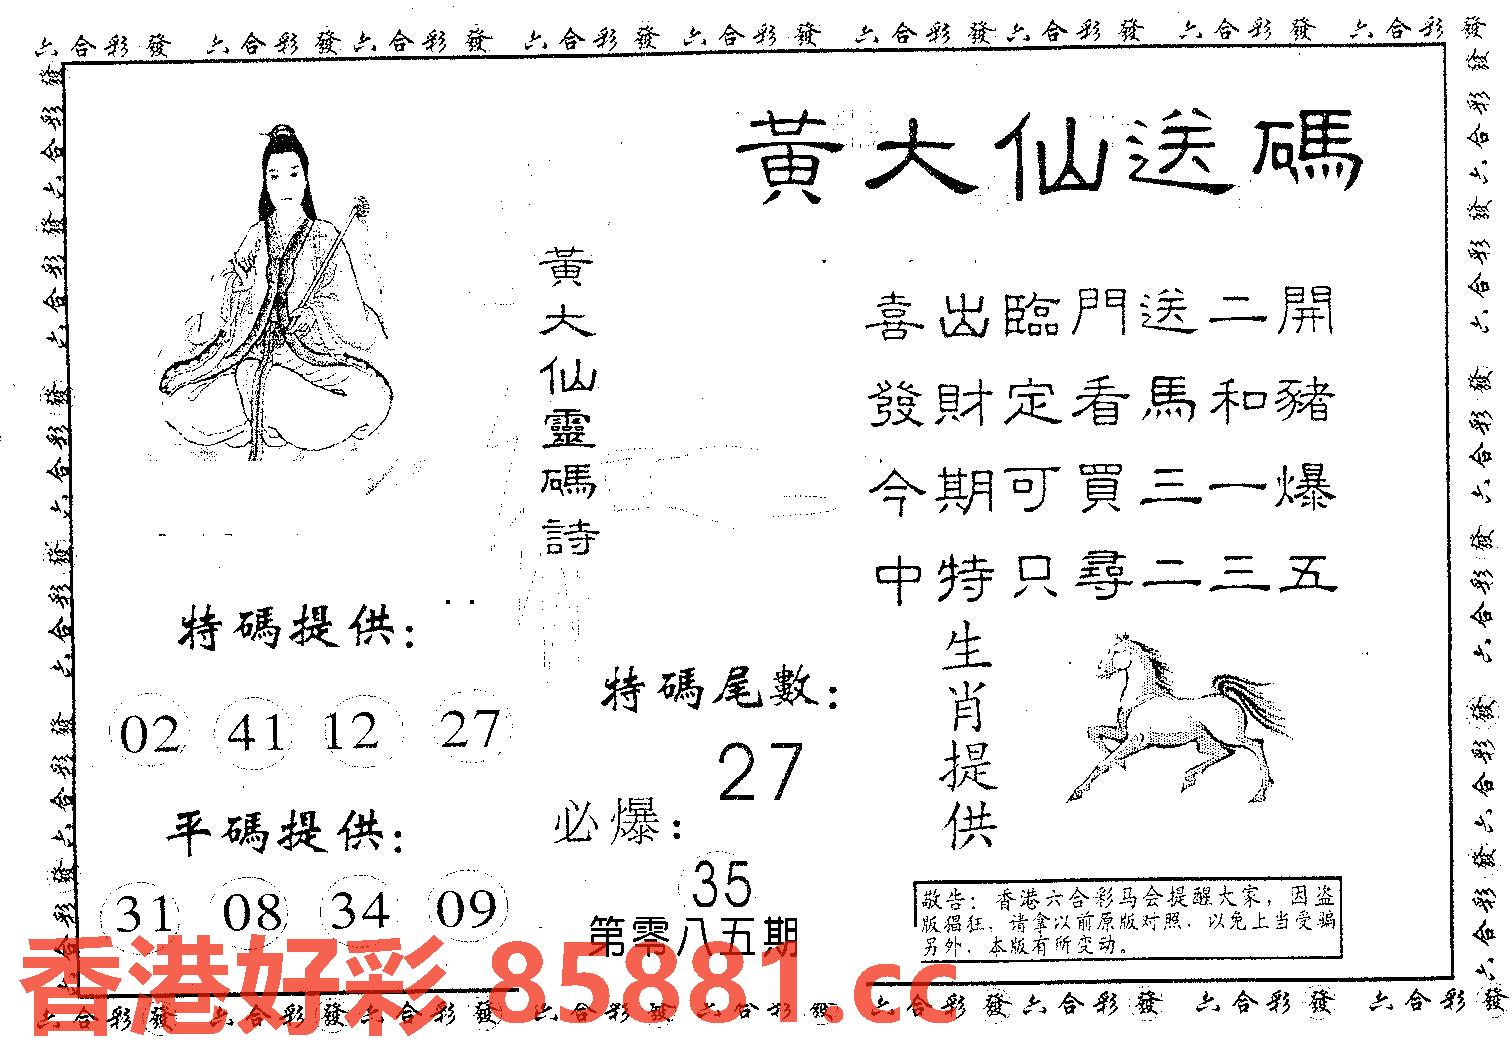 六合彩發 六合彩發六合彩發 六合彩發 六合彩發 六合彩發六合彩發 六合彩發 六合彩發
黃大仙送碼
黃大仙靈碼詩
喜出臨門送二開
發財定看馬和豬
今期可買三一爆
中特只尋二三五
特碼提供：
02 41 12 27
平碼提供：
31 08 34 09
特碼尾數：
27
必爆：
35
第零八五期
生肖提供
敬告：香港六合彩马会提醒大家，因盗
版猖狂，请拿以前原版对照，以免上当受骗
另外，本版有所变动。
香港好彩 85881.cc
六合彩發 六合彩發六合彩發 六合彩發六合彩發 六合彩發六合彩發 六合彩發 六合彩發